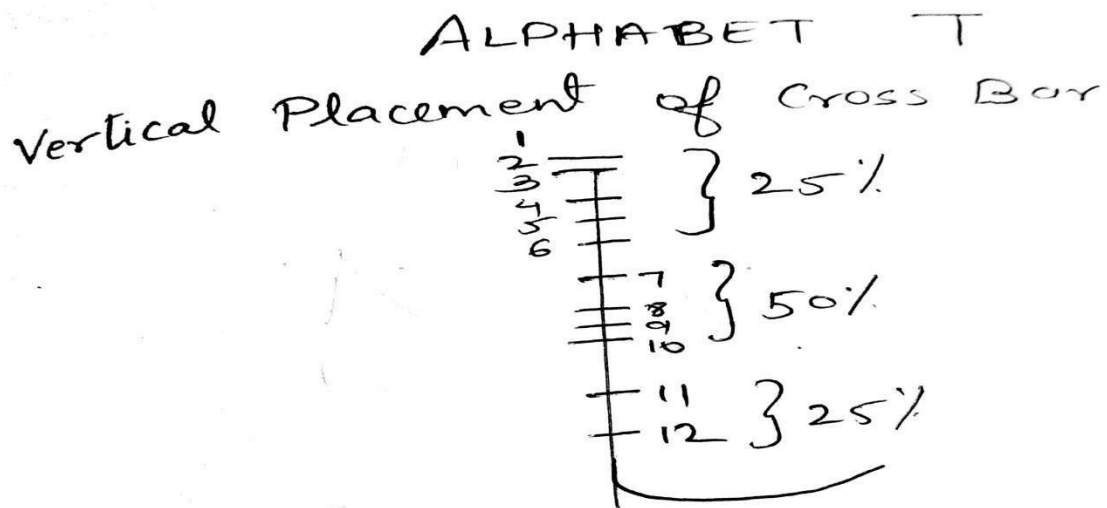 ALPHABET T
Vertical Placement of Cross Bar
1
2
3
4
5
6
} 25%
7
8
9
10
} 50%
11
12
} 25%